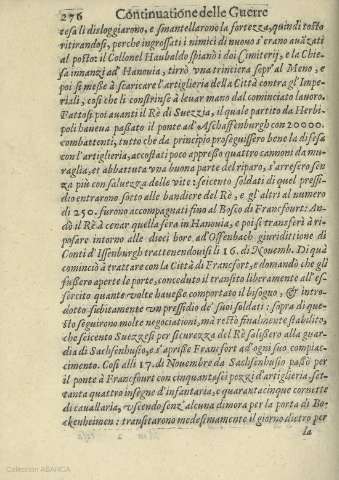 276 Continuatione delle Guerre
tesa li disloggiarono, e smantellarono la fortezza, quindi tosto
ritirandosi, perche ingrossati i nimici di nuouo s'erano auãzati
al posto: il Collonel Haubaldo spianò i doi Cimiterij, e la Chie-
sa innanzi ad Hanouia, tirò vna trintiera sopr'al Meno, e
poi se messe à scaricare l'artiglieria della Città contra gl'Impe-
riali, così che li constrinse à leuar mano dal cominciato lauoro.
Fattosi poi auanti il Rè di Suezzia, il quale partito da Herbi-
poli haueua passato il ponte ad Aschaffenburgh con 20000.
combattenti, tutto che da principio proseguissero bene la difesa
con l'artiglieria, accostati poco appresso quattro cannoni da mu-
raglia, et abbattuta vna buona parte del riparo, s'arresero sen-
za più con saluezza delle vite: seicento soldati di quel presi-
dio entrarono sotto alle bandiere del Rè, e gl'altri al numero
di 250. furono accompagnati fino al Bosco di Francfourt: An-
dò il Rè à cenar quella sera in Hanouia, e poi si transferì à ri-
posare intorno alle dieci hore ad Offenbach giuridittione di
Conti d'Issenburgh trattenendouisi li 16. di Nouemb. Di quà
cominciò à trattare con la Città di Francfort, e domandò che gli
fussero aperte le porte, conceduto il transito liberamente all'es-
sercito quante volte hauesse comportato il bisogno, & intro-
dotto subitamente vn pressidio de' suoi soldati: sopra di que-
sto seguirono molte negociationi, mà restò finalmente stabilito,
che seicento Suezzesi per sicurezza del Rè salissero alla guar-
dia di Sachsenhusio, e s'aprisse Francfort ad ogni suo compia-
cimento. Così alli 17. di Nouembre da Sachsenhusio passò per
il ponte à Francfourt con cinquantasei pezzi d'artiglieria set-
tanta quattro insegne d'infantaria, e quarantacinque cornette
di cauallaria, vscendo senz'alcuna dimora per la porta di Bo-
ckenheimen: transitarono medesimamente il giorno dietro per
la
Colección ABANCA